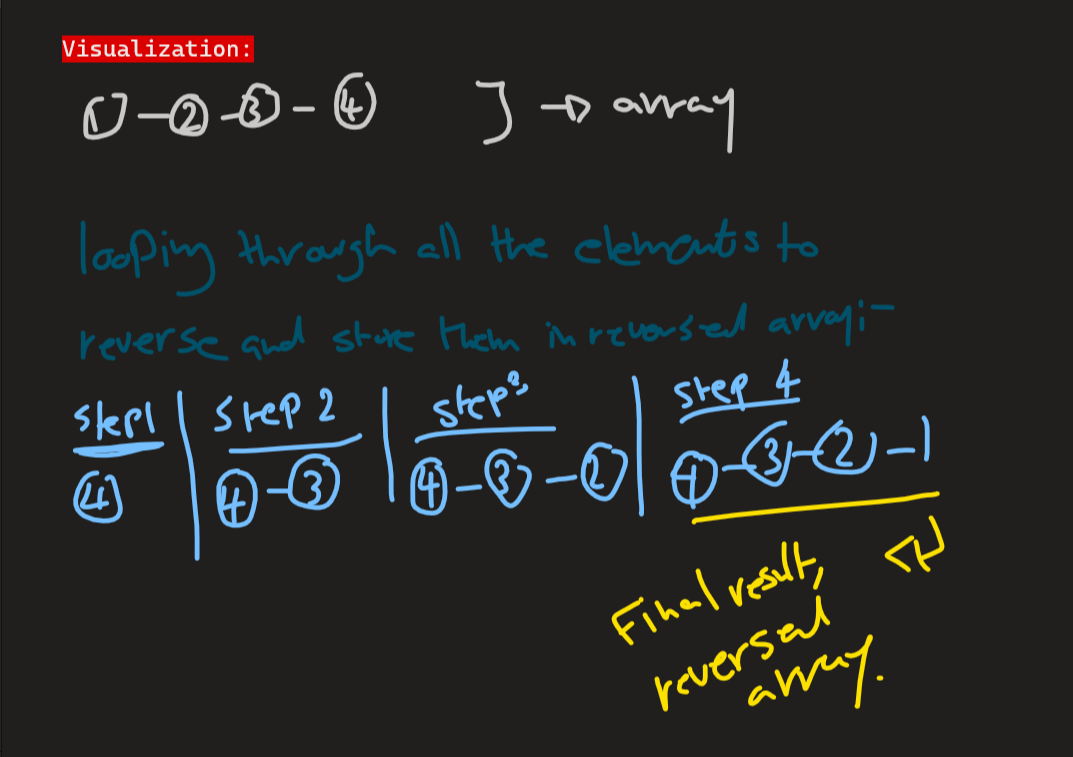 Visualization:
[1 - 2 - 3 - 4 ] → array
looping through all the elements to
reverse and store them in reversed array:-
step1 | step 2 | step3 | step 4
4 | 4 - 3 | 4 - 3 - 2 | 4 - 3 - 2 - 1
Final result,
reversed
array.